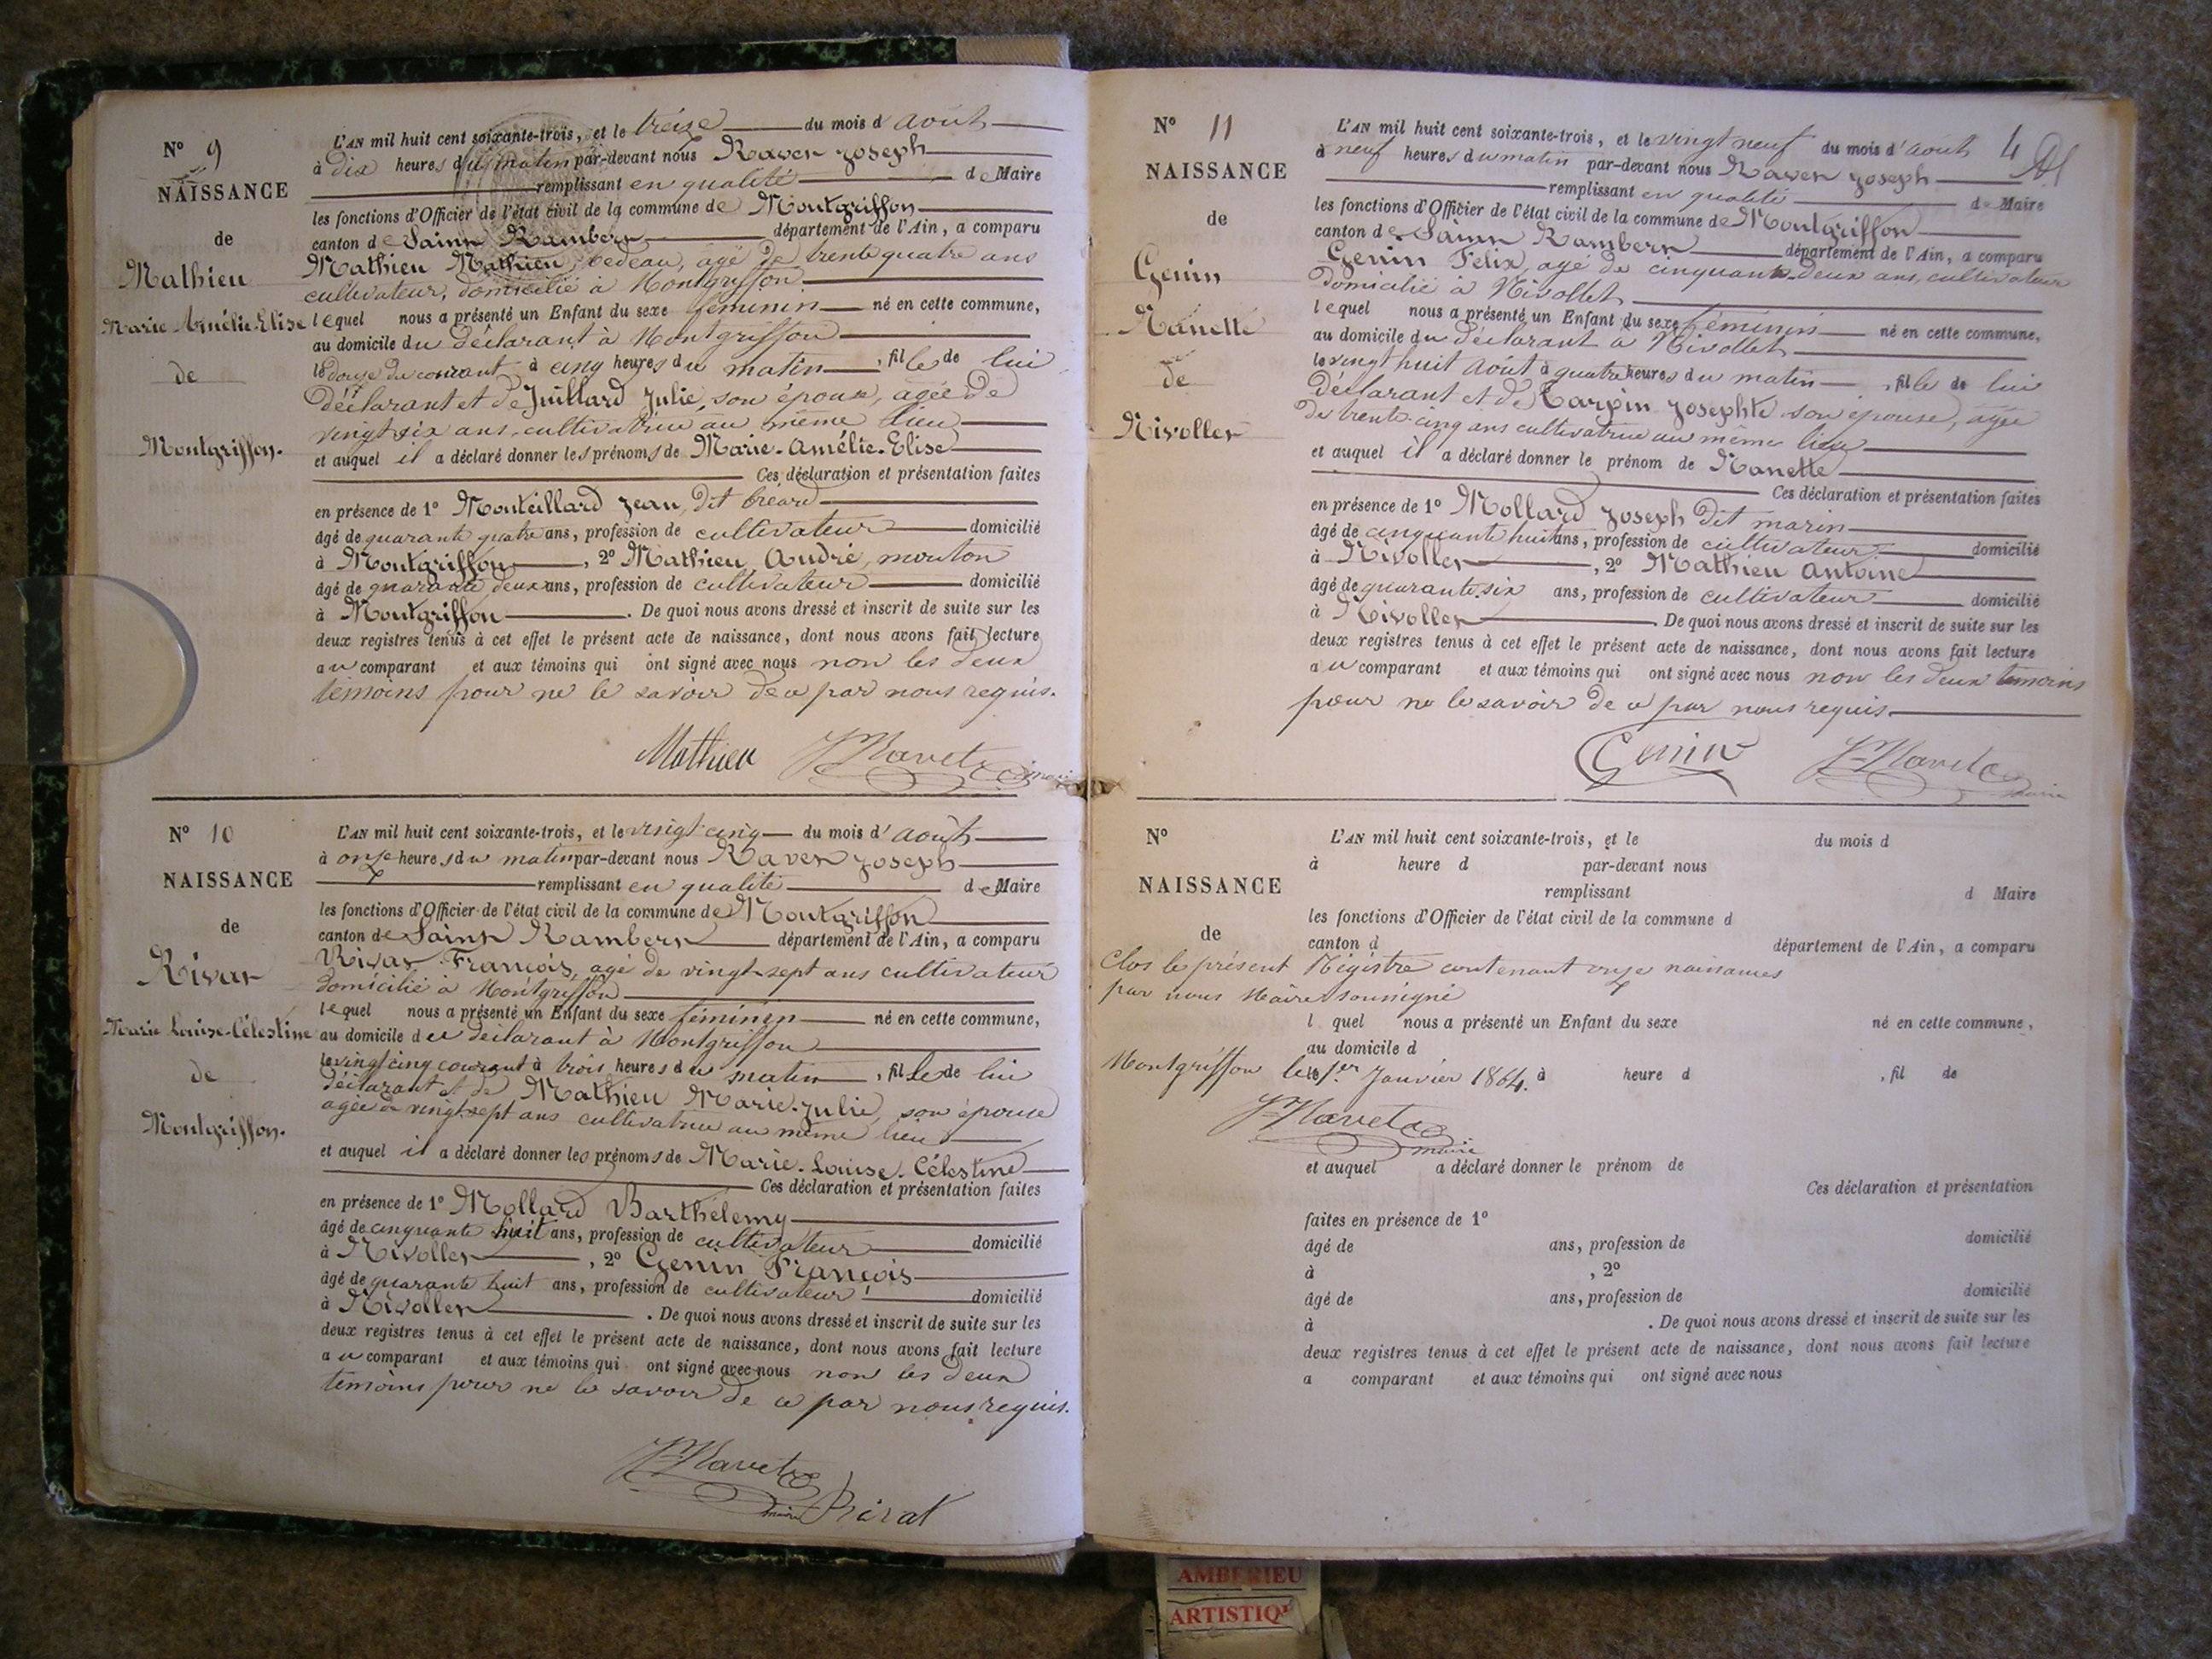 N° 9
NAISSANCE
de
Mathieu
Marie Amélie Elise
de
Montgriffon.
L'AN mil huit cent soixante-trois, et le treize du mois d'Août
à dix heures du matin par-devant nous Ravet Joseph
remplissant en qualité de Maire
les fonctions d'Officier de l'état civil de la commune de Montgriffon
canton de Saint Rambert département de l'Ain, a comparu
Mathieu Mathieu, bedeau, agé de trente quatre ans
cultivateur, domicilié à Montgriffon
lequel nous a présenté un Enfant du sexe féminin né en cette commune,
au domicile du déclarant à Montgriffon
le douze du courant à cinq heures du matin, fille de lui
déclarant et de Juillard Julie, son épouse, agée de
vingt six ans, cultivatrice au même lieu
et auquel il a déclaré donner les prénoms de Marie-Amélie-Elise
Ces déclaration et présentation faites
en présence de 1° Monteillard Jean, dit
âgé de quarante quatre ans, profession de cultivateur domicilié
à Montgriffon, 2° Mathieu, André, mouton
âgé de quarante deux ans, profession de cultivateur domicilié
à Montgriffon. De quoi nous avons dressé et inscrit de suite sur les
deux registres tenus à cet effet le présent acte de naissance, dont nous avons fait lecture
au comparant et aux témoins qui ont signé avec nous non les deux
témoins pour ne le savoir de ce par nous requis.
Mathieu J Ravet maire
N° 10
NAISSANCE
de
Rivat
Marie Louise-Célestine
de
Montgriffon.
L'AN mil huit cent soixante-trois, et le vingt-cinq du mois d'Août
à onze heures du matin par-devant nous Ravet Joseph
remplissant en qualité de Maire
les fonctions d'Officier de l'état civil de la commune de Montgriffon
canton de Saint Rambert département de l'Ain, a comparu
Rivat François, agé de vingt-sept ans cultivateur
domicilié à Montgriffon
lequel nous a présenté un Enfant du sexe féminin né en cette commune,
au domicile du déclarant à Montgriffon
le vingt cinq courant à trois heures du matin, fille de lui
déclarant et de Mathieu Marie-Julie, son épouse
agée de vingt-sept ans cultivatrice au même lieu
et auquel il a déclaré donner les prénoms de Marie-Louise-Célestine
Ces déclaration et présentation faites
en présence de 1° Mollard Barthélemy
âgé de cinquante huit ans, profession de cultivateur domicilié
à Nivollet, 2° Genin François
âgé de quarante huit ans, profession de cultivateur domicilié
à Nivollet. De quoi nous avons dressé et inscrit de suite sur les
deux registres tenus à cet effet le présent acte de naissance, dont nous avons fait lecture
au comparant et aux témoins qui ont signé avec nous non les deux
témoins pour ne le savoir de ce par nous requis.
J Ravet
maire Rivat
4
N° 11
NAISSANCE
de
Genin
Nanette
de
Nivollet
L'AN mil huit cent soixante-trois, et le vingt neuf du mois d'Août
à neuf heures du matin par-devant nous Ravet Joseph
remplissant en qualité de Maire
les fonctions d'Officier de l'état civil de la commune de Montgriffon
canton de Saint Rambert département de l'Ain, a comparu
Genin Felix, agé de cinquante-deux ans, cultivateur
domicilié à Nivollet
lequel nous a présenté un Enfant du sexe féminin né en cette commune,
au domicile du déclarant à Nivollet
le vingt huit Août à quatre heures du matin, fille de lui
déclarant et de Carpin Josephte son épouse, agée
de trente-cinq ans cultivatrice au même lieu
et auquel il a déclaré donner le prénom de Nanette
Ces déclaration et présentation faites
en présence de 1° Mollard Joseph dit marin
âgé de cinquante huit ans, profession de cultivateur domicilié
à Nivollet, 2° Mathieu Antoine
âgé de quarante-six ans, profession de cultivateur domicilié
à Nivollet. De quoi nous avons dressé et inscrit de suite sur les
deux registres tenus à cet effet le présent acte de naissance, dont nous avons fait lecture
au comparant et aux témoins qui ont signé avec nous non les deux temoins
pour ne le savoir de ce par nous requis.
Genin J Ravet
maire
N°
NAISSANCE
de
L'AN mil huit cent soixante-trois, et le du mois d
à heure d par-devant nous
remplissant d Maire
les fonctions d'Officier de l'état civil de la commune d
canton d département de l'Ain, a comparu
Clos le présent Régistre contenant onze naissances
par nous Maire soussigné
l quel nous a présenté un Enfant du sexe né en cette commune,
au domicile d
Montgriffon le 1er Janvier 1864. à heure d , fil de
J Ravet
maire
et auquel a déclaré donner le prénom de
Ces déclaration et présentation
faites en présence de 1°
âgé de ans, profession de domicilié
à , 2°
âgé de ans, profession de domicilié
à . De quoi nous avons dressé et inscrit de suite sur les
deux registres tenus à cet effet le présent acte de naissance, dont nous avons fait lecture
a comparant et aux témoins qui ont signé avec nous
AMBERIEU
ARTISTIQ